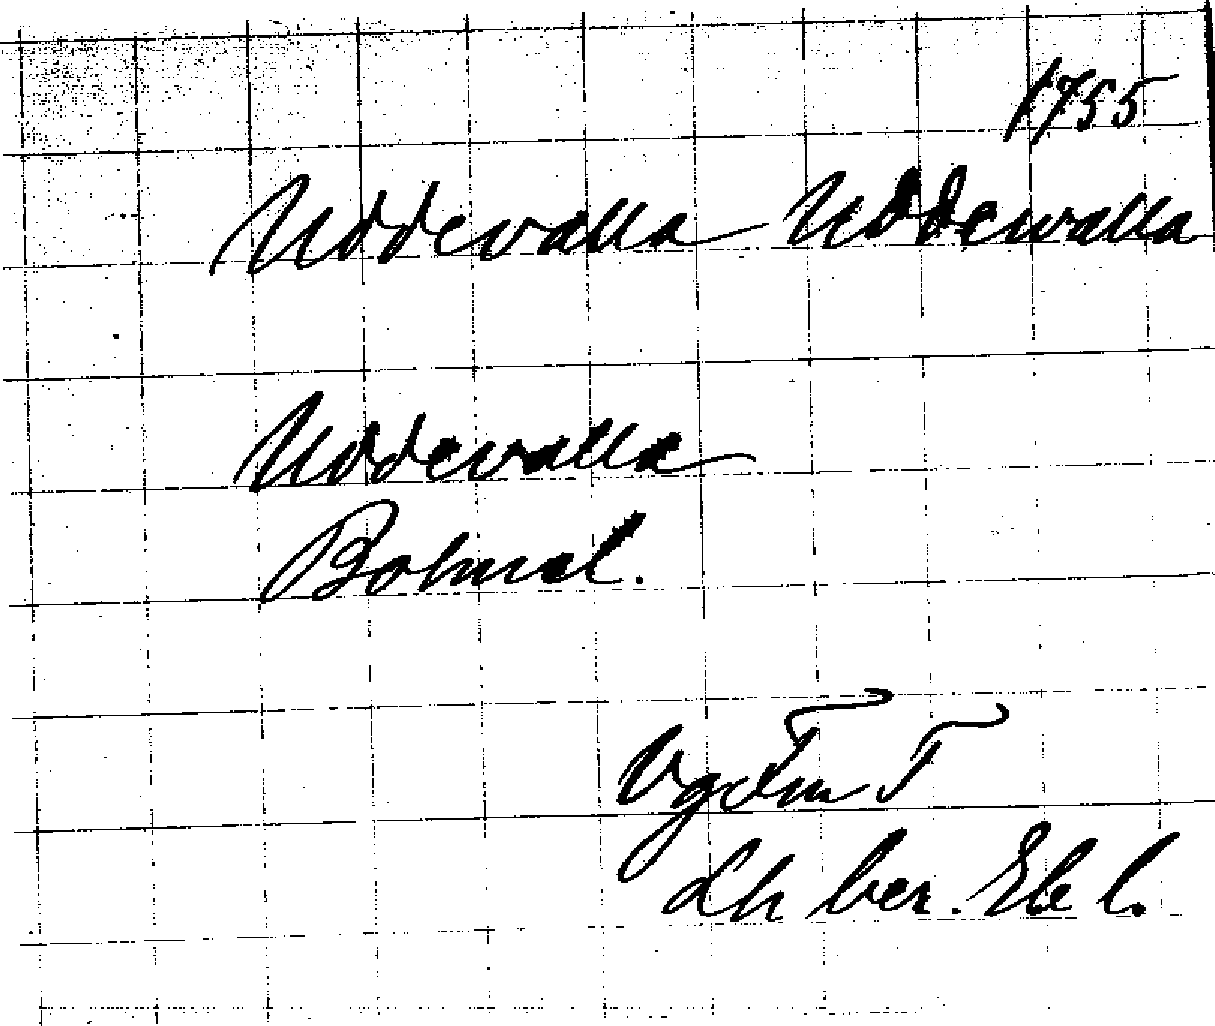 1755
Uddevalla Uddevalla
Uddevalla
Bohusl.
Lh ber.